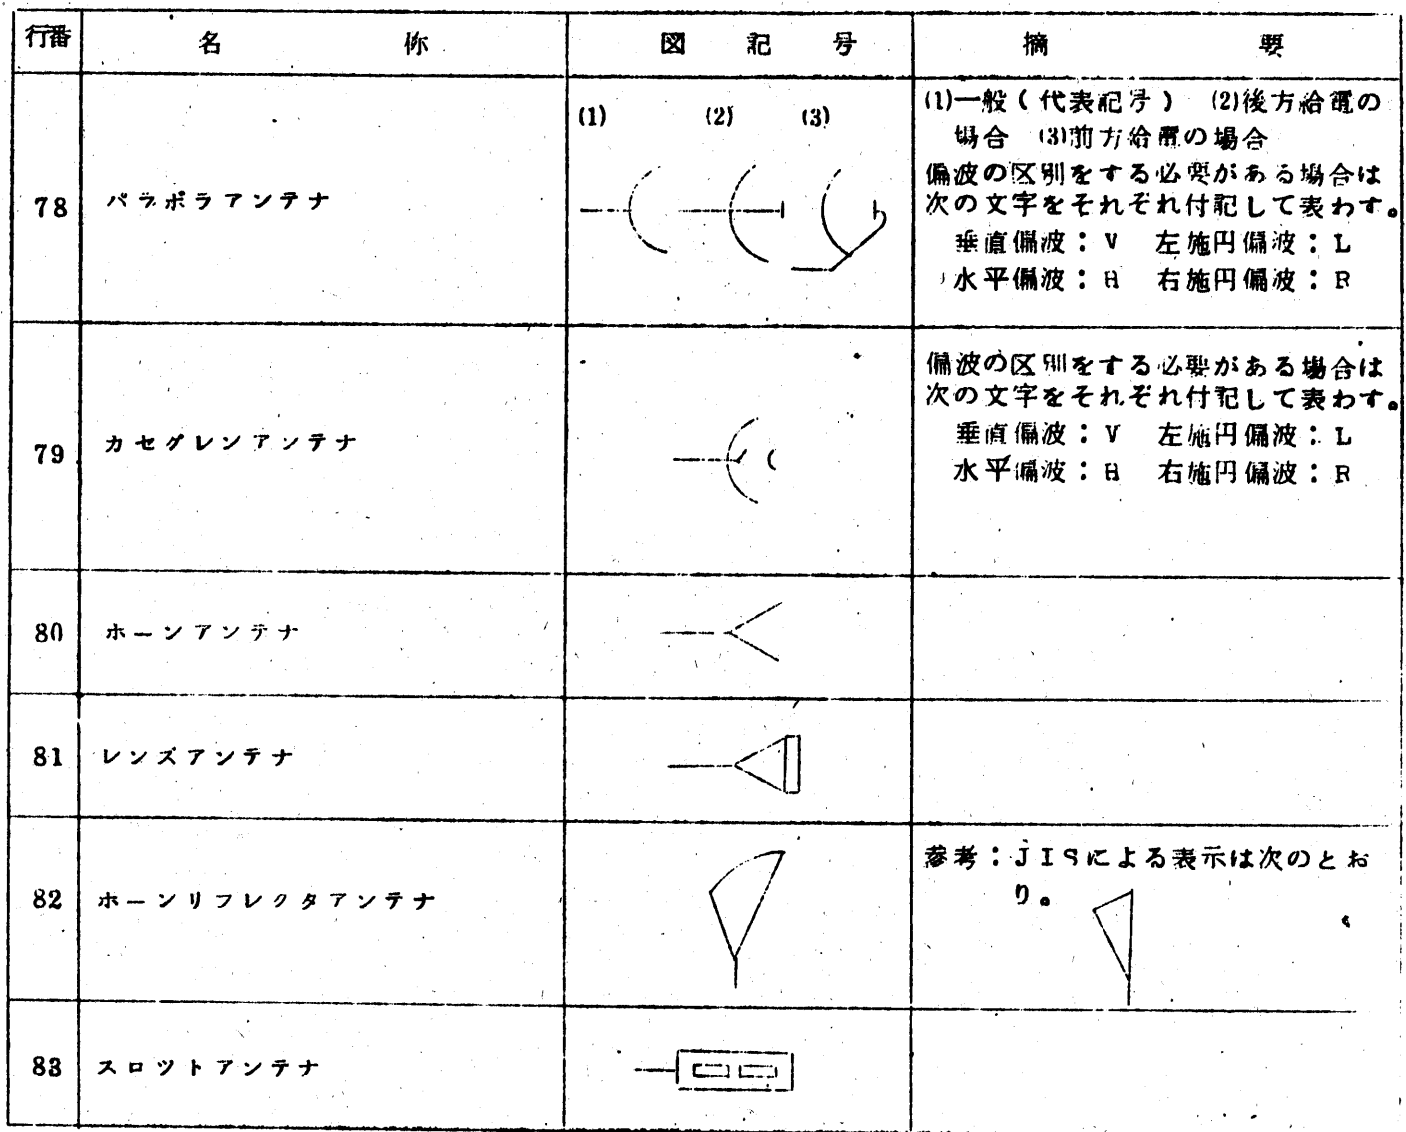 行番 名称 図記号 摘要
78 パラボラアンテナ
(1) (2) (3)
(1)一般(代表記号) (2)後方給電の
場合 (3)前方給電の場合
偏波の区別をする必要がある場合は
次の文字をそれぞれ付記して表わす。
垂直偏波:V 左施円偏波:L
水平偏波:H 右施円偏波:R
79 カセグレンアンテナ
偏波の区別をする必要がある場合は
次の文字をそれぞれ付記して表わす。
垂直偏波:V 左施円偏波:L
水平偏波:H 右施円偏波:R
80 ホーンアンテナ
81 レンズアンテナ
82 ホーンリフレクタアンテナ
参考:JISによる表示は次のとお
り。
83 スロツトアンテナ